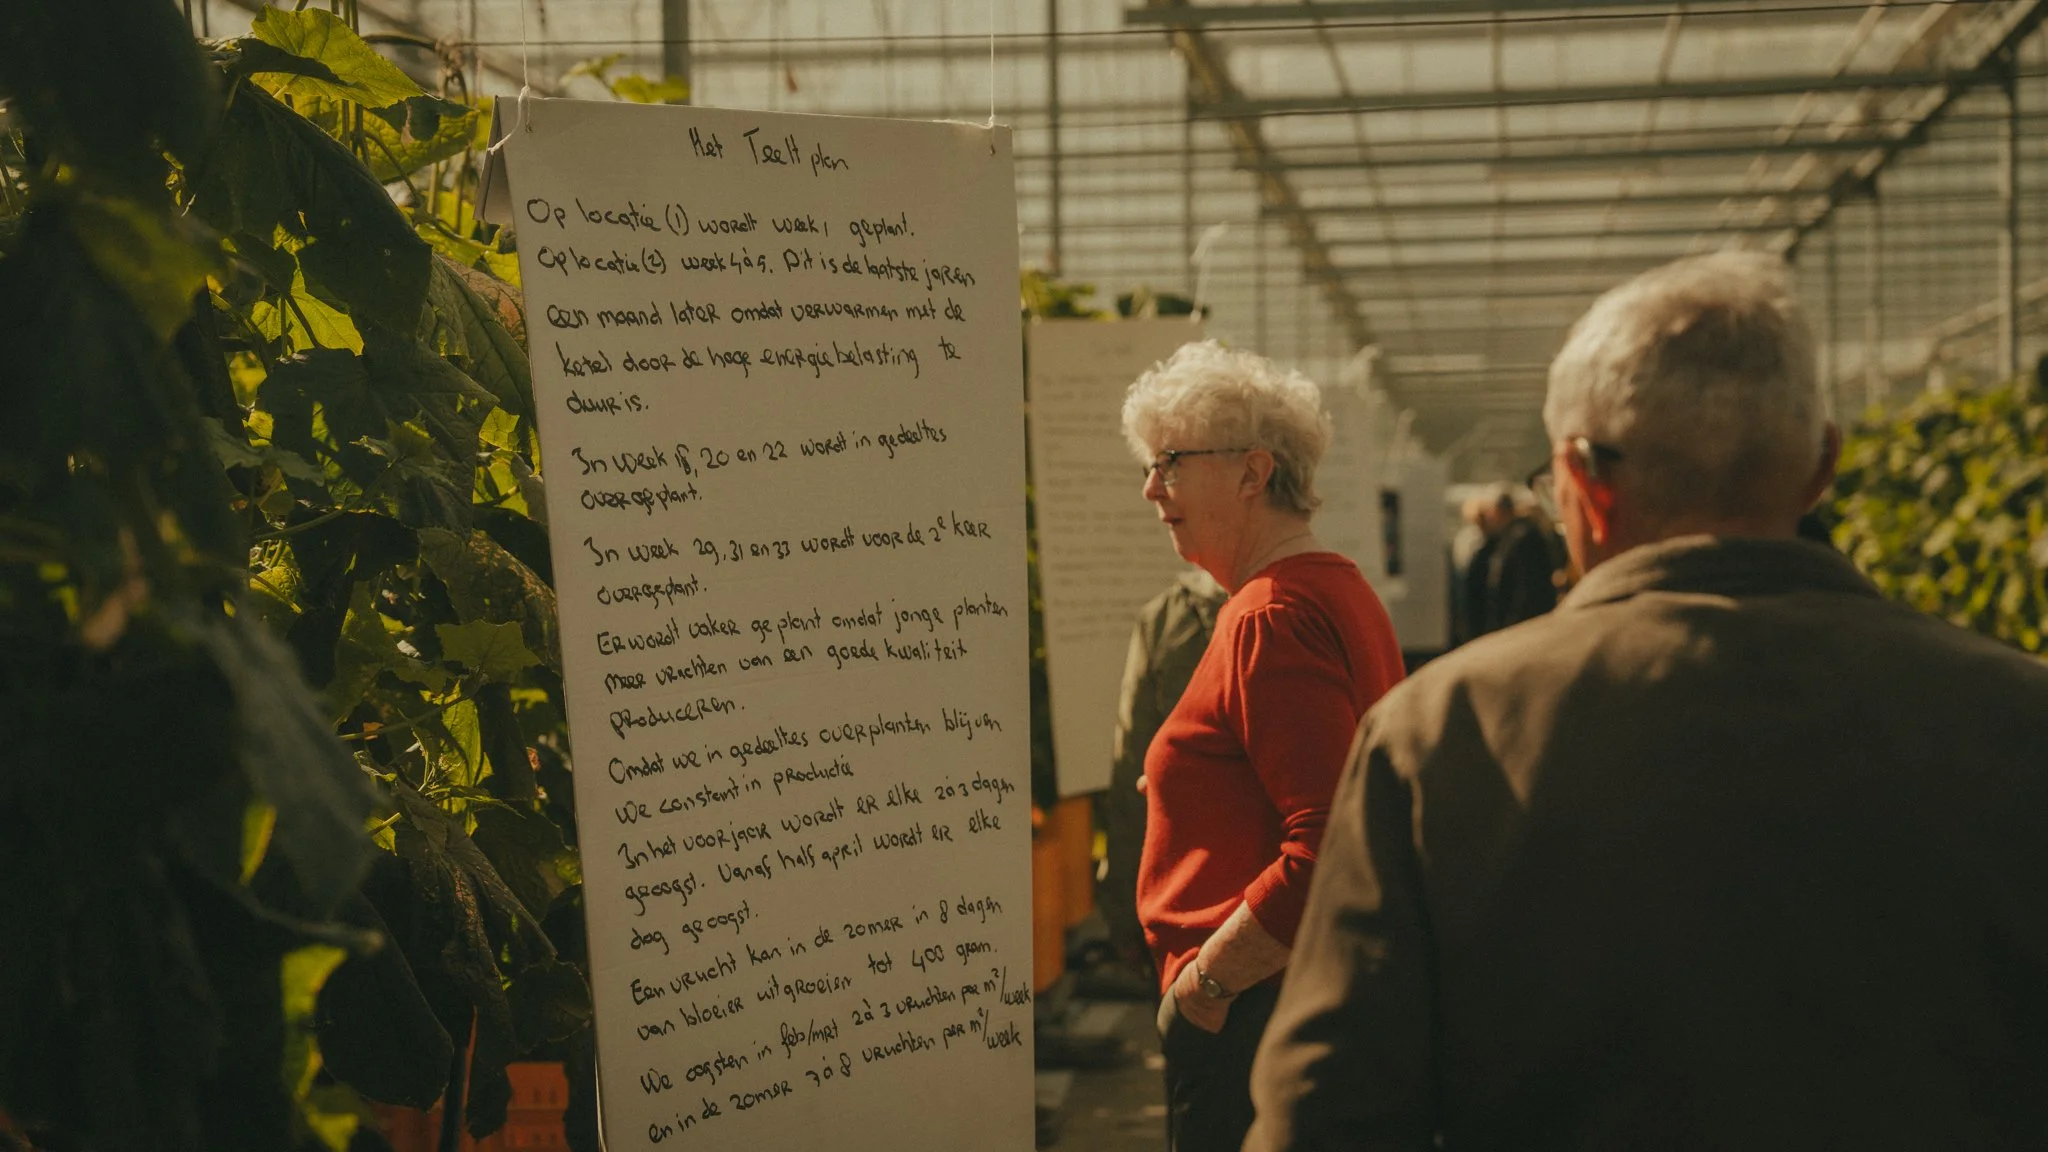 Het Teelt plan
Op locatie (1) wordt week 1 geplant.
Op locatie (2) week 4 à 5. Dit is de laatste jaren
een maand later omdat verwarmen met de
ketel door de hoge energiebelasting te
duur is.
In week 18, 20 en 22 wordt in gedeeltes
overgeplant.
In week 29, 31 en 33 wordt voor de 2e keer
overgeplant.
Er wordt vaker geplant omdat jonge planten
meer vruchten van een goede kwaliteit
produceren.
Omdat we in gedeeltes overplanten blijven
we constant in productie
In het voorjaar wordt er elke 2 à 3 dagen
geoogst. Vanaf half april wordt er elke
dag geoogst.
Een vrucht kan in de zomer in 8 dagen
van bloeier uitgroeien tot 400 gram.
We oogsten in feb/mrt 2 à 3 vruchten per m²/week
en in de zomer 7 à 8 vruchten per m²/week